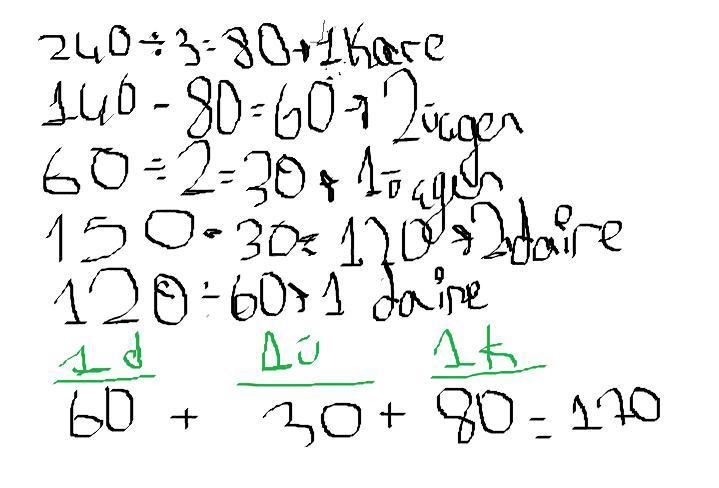 240÷3=80→1kare
140-80=60→2üçgen
60÷2=30→1üçgen
150-30=120→2daire
120÷60→1 daire
1d 1ü 1k
60 + 30 + 80 = 170